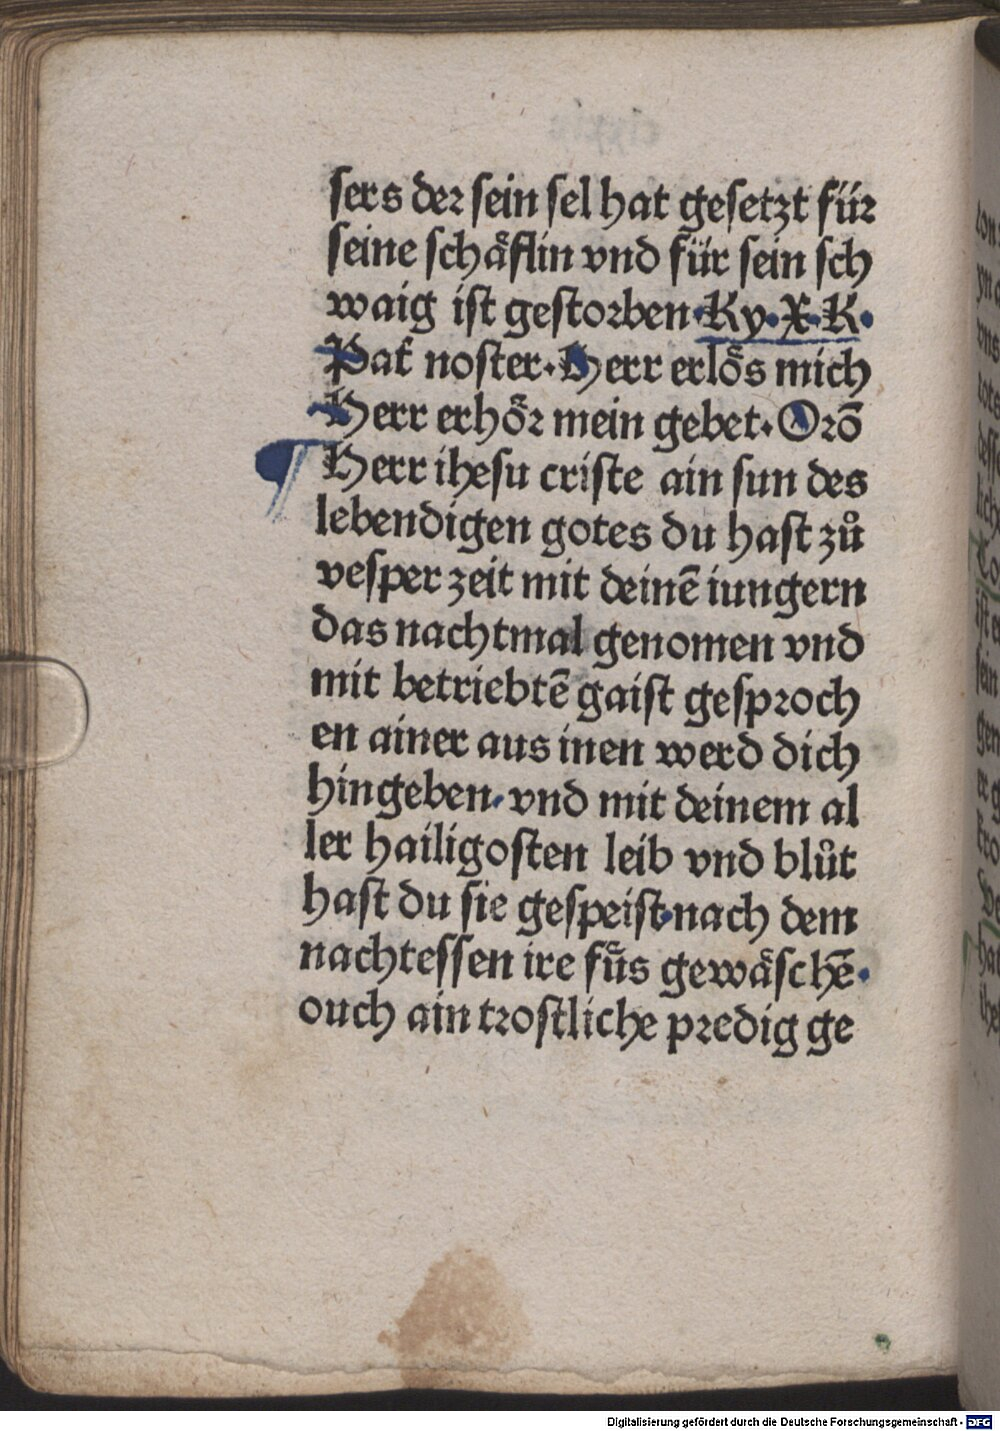 sers der sein sel hat gesetzt für
seine schäflin vnd für sein sch
waig ist gestorben·Ky·X·K·
Pat̃ noster·Herr erlȫs mich
Herr erhȫr mein gebet·Orō
¶ Herr ihesu criste ain sun des
lebendigen gotes du hast zů
vesper zeit mit deinē iungern
das nachtmal genomen vnd
mit betriebtē gaist gesproch
en ainer aus inen werd dich
hingeben·vnd mit deinem al
ler hailigosten leib vnd blůt
hast du sie gespeist·nach dem
nachtessen ire füs gewäschē·
ouch ain trostliche predig ge
Digitalisierung gefördert durch die Deutsche Forschungsgemeinschaft - DFG